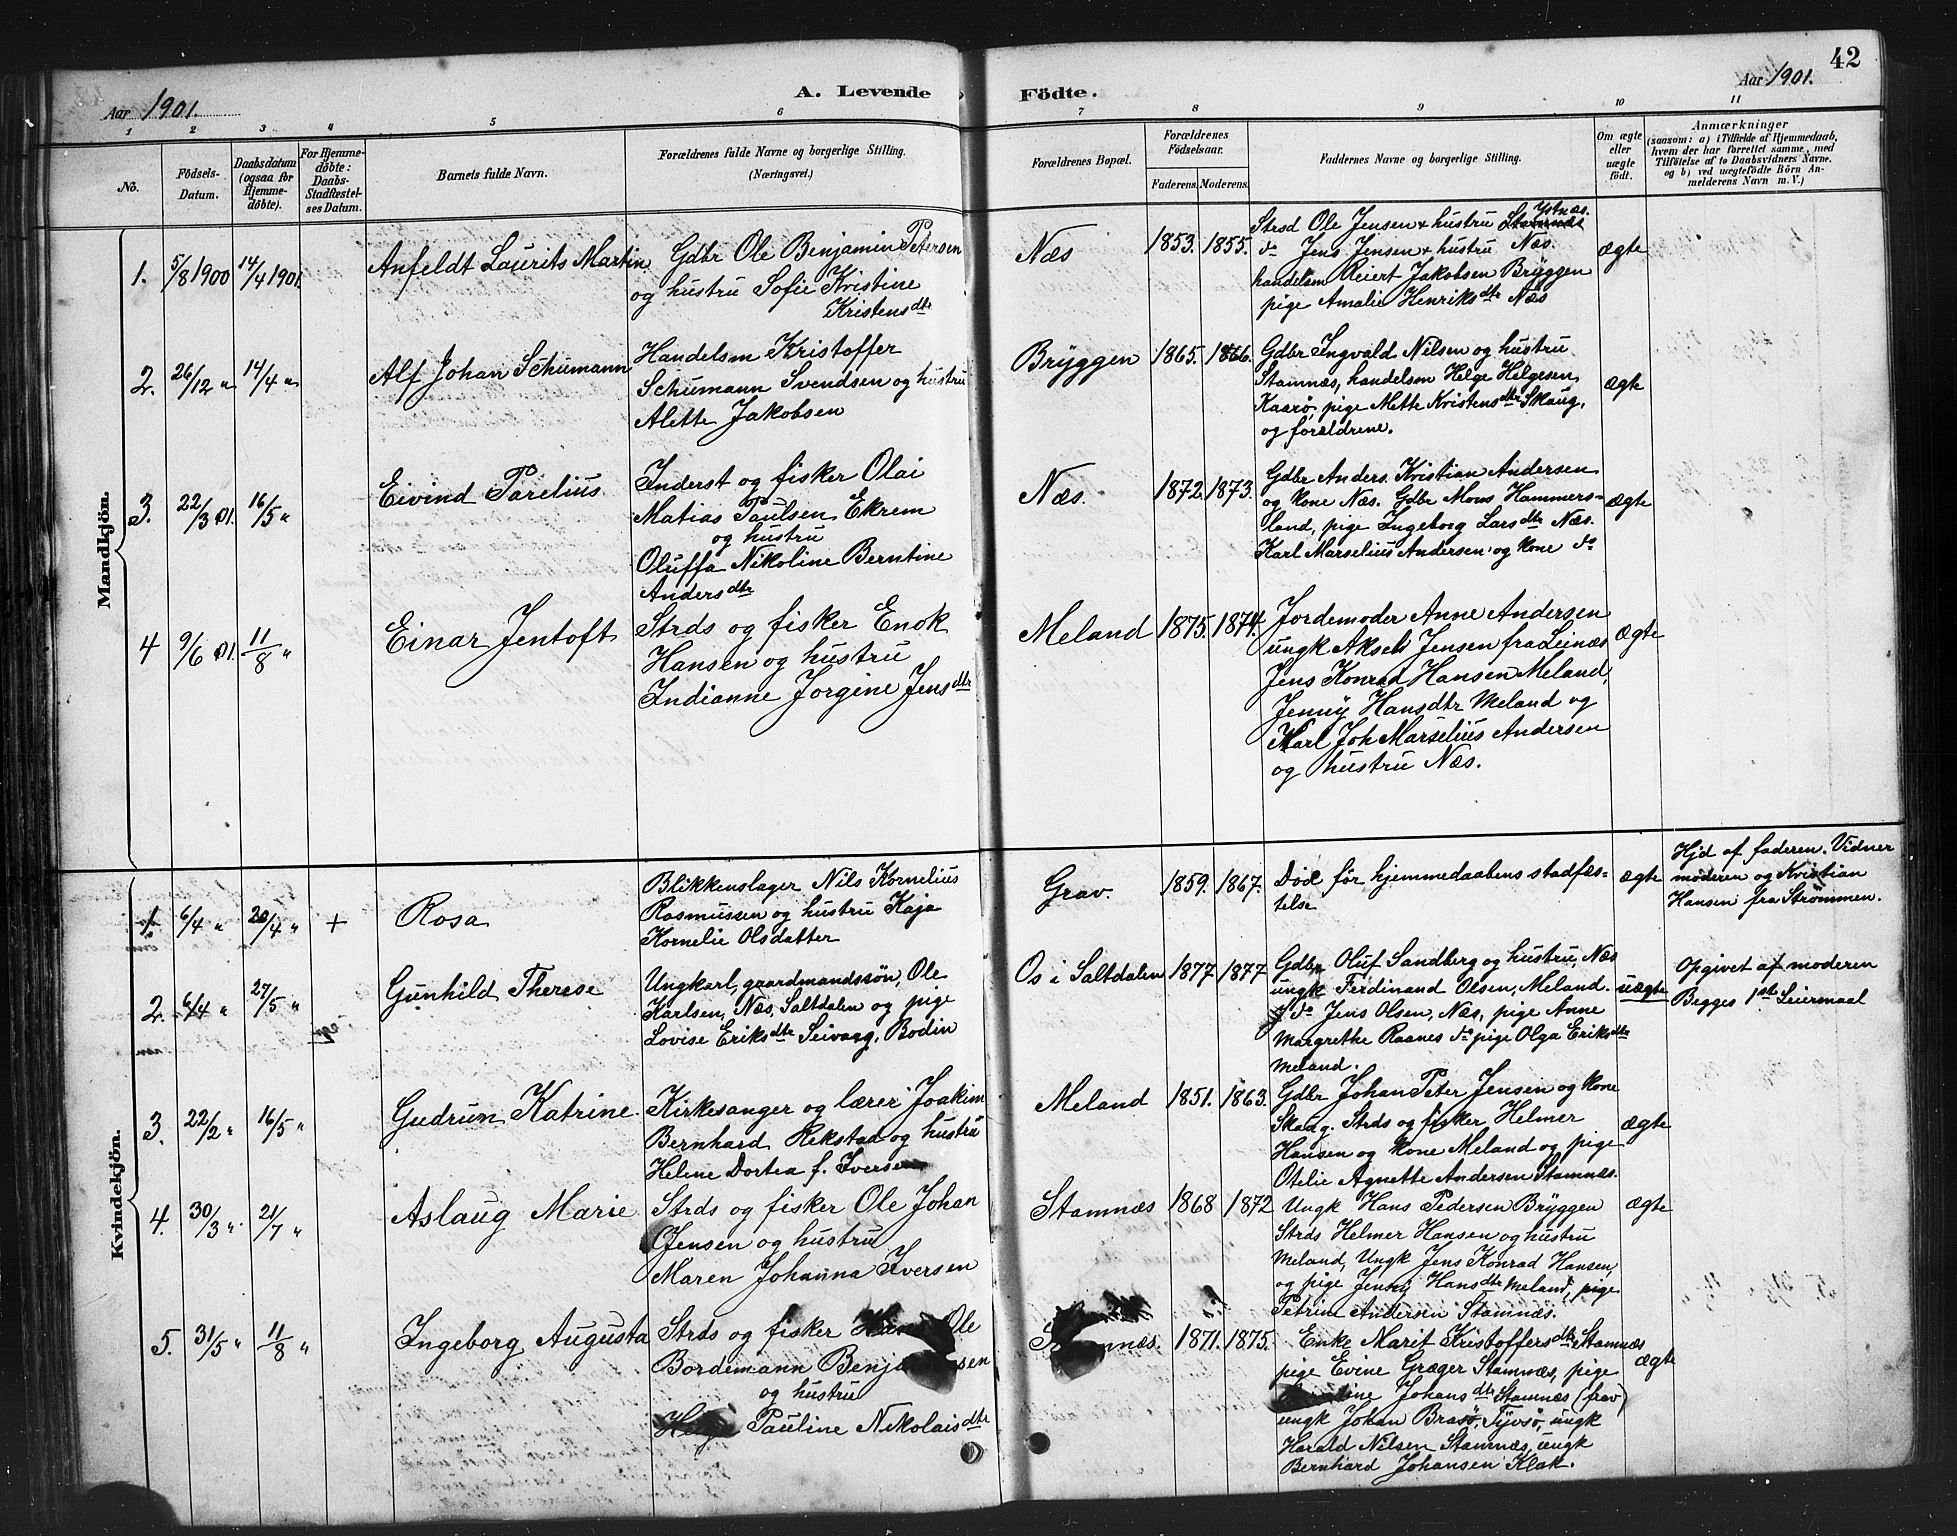 42
Aar 1901.
A. Levende Födte.
Aar 1901.
1 2 3 4 5 6 7 8 9 10 11
No.
Födsels-Datum.
Daabsdatum (ogsaa for Hjemme-døbte).
For Hjemme-döbte: Daabs-Stadfæstel-ses Datum.
Barnets fulde Navn.
Forældrenes fulde Navne og borgerlige Stilling. (Næringsvei.)
Forældrenes Bopæl.
Forældrenes Födselsaar.
Faderens. Moderens.
Faddernes Navne og borgerlige Stilling.
Om ægte eller uægte født.
Anmærkninger
(saasom: a) i Tilfælde af Hjemmedaab,
hvem der har forrettet samme, med
Tilføielse af to Daabsvidners Navne.
og b) ved uegtefödte Börn An-
melderens Navn m. V.)
Mandkjön.
1. 5/8 1900 14/4 1901 Anfeldt Laurits Martin
Gdbr Ole Benjamin Petersen
og hustru Sofie Kristine
Kristensdtr
Næs 1853. 1855.
Strsd Ole Jensen + hustru Stamnæs Ystnæs.
do Jens Jensen + hustru Næs.
handelsm Reiert Jakobsen Brÿggen
pige Amalie Henriksdtr Næs
ægte
2. 26/12 " 14/4 " Alf Johan Schumann
Handelsm Kristoffer
Schumann Svendsen og hustru
Alette Jakobsen
Brÿggen 1865. 1866.
Gdbr Ingvald Nilsen og hustru
Stamnæs, handelsm Helge Helgesen
Kaarø, pige Mette Kristensdtr Skaug,
og forældrene.
ægte
3. 22/3 01. 16/5 " Eivind Parelius
Inderst og fisker Olai
Matias Paulsen Ekrem
og hustru
Oluffa Nikoline Berntine
Andersdtr
Næs. 1872. 1873.
Gdbr Anders Kristian Andersen
og kone Næs. Gdbr Mons Hammers-
land, pige Ingeborg Larsdtr Næs.
Karl Marselius Andersen og kone do
ægte
4 9/6 01. 11/8 " Einar Jentoft
Strds og fisker Enok
Hansen og hustru
Indianne Jorgine Jensdtr
Meland 1875. 1874.
Jordemoder Anne Andersen
ungk Aksel Jensen fra Leinæs
Jens Konrad Hansen Meland,
Jennÿ Hansdtr Meland og
Karl Joh Marselius Andersen
og hustru Næs.
ægte
Kvindekjön.
1. 6/4 " 20/4 " + Rosa
Blikkenslager Nils Kornelius
Rasmussen og hustru Kaja
Kornelie Olsdatter
Grav. 1859. 1867.
Död før hjemmedaabens stadfæs-
telse
ægte
Hjd af faderen. Vidner
moderen og Kristian
Hansen fra Strømmen.
2. 6/4 " 27/5 " Gunhild Therese
Ungkarl, gaardmandssön, Ole
Karlsen, Næs, Saltdalen og pige
Lovise Eriksdtr Seivaag, Bodin
Os i Saltdalen 1877 1877
Gdbr Oluf Sandberg og hustru, Næs
ungk Ferdinand Olsen, Meland.
do Jens Olsen, Næs, pige Anne
Margrethe Raanes do pige Olga Eriksdtr
Meland.
uægte
Opgivet af moderen
Begges 1ste Leiermaal
3. 22/2 " 16/5 " Gudrun Katrine
Kirkesanger og lærer Joakim
Bernhard Rekstad og hustru
Helene Dortea f. Iversen
Meland 1851. 1863.
Gdbr Johan Peter Jensen og kone
Skaug. Strds og fisker Helmer
Hansen og kone Meland og pige
Otelie Agnette Andersen Stamnæs.
ægte
4. 30/3 " 21/7 " Aslaug Marie
Strds og fisker Ole Johan
Jensen og hustru
Maren Johanna Iversen
Stamnæs 1868 1872
Ungk Hans Pedersen Brÿggen
Strds Helmer Hansen og hustru
Meland, Ungk Jens Konrad Hansen,
og pige Jennÿ Hansdtr Meland, pige
Petrine Andersen Stamnæs.
ægte
5. 31/5 " 11/8 " Ingeborg Augusta
Strds og fisker Ole
Bordemann
og hustru
Pauline Nikolaisdtr
1871. 1875.
Enke Marit Kristoffersdtr Stamnæs
pige Evine Græger Stamnæs, pige
Johansdtr Stamnæs (frav)
ungk Johan Brasø, Tÿvsø, ungk
Harald Nilsen Stamnæs, ungk
Bernhard Johansen Klak.
ægte